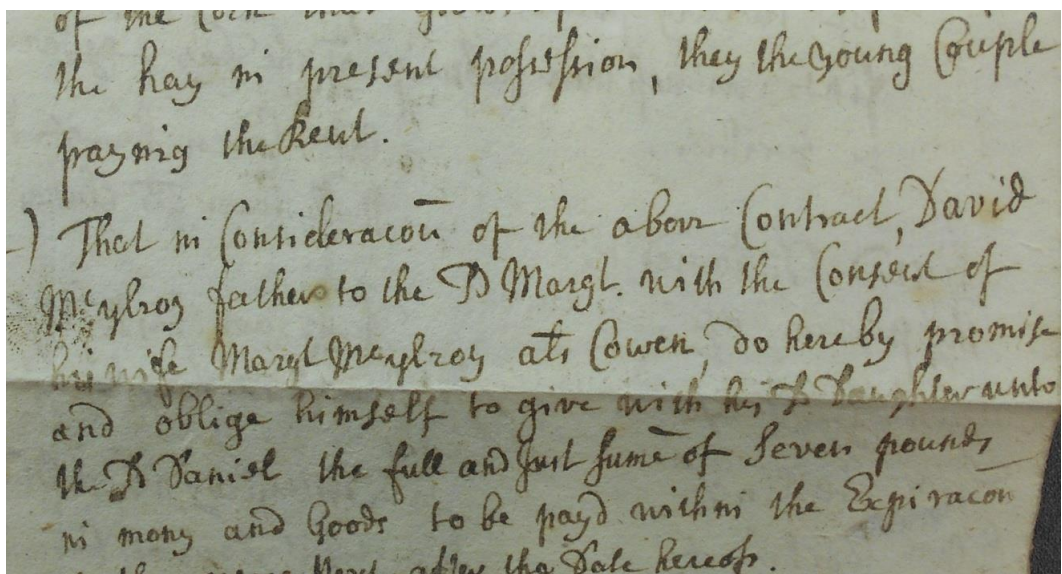 of the Corn
the hay in present possession, they the young Couple
paying the Rent.
) That in Consideracon̄ of the above Contract, David
McYlroy father to the sd Margt. with the Consent of
his wife Margt McYlroy ats Cowen, do hereby promise
and oblige himself to give with his sd Daughter unto
the sd Daniel the full and Just sume of Seven pounds
in mony and Goods to be payd within the Expiracon
next after the Date hereof.